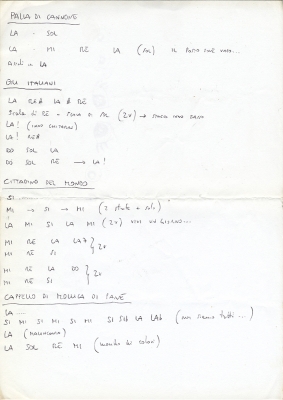 PALLA DI CANNONE
LA - SOL
LA - MI RE LA (SOL) IL POETA CHE VOLA...
ASSOLO in LA
GLI ITALIANI
LA RE# LA # RE
Scala di RE + (2v) →
LA! (SOLO CHITARRA)
LA! RE#
DO SOL LA
DO SOL RE → LA!
CITTADINO DEL MONDO
SI
MI → SI → MI (2 strofe + solo)
LA MI SI LA MI (2v) VIVI UN GIORNO...
MI RE LA LA7 } 2v
MI RE SI
MI RE LA DO } 2v
MI RE SI
CAPPELLO DI MOLLICA DI PANE
LA ....
SI MI SI MI SI MI SI SIb LA LAb (noi siamo tutti ...)
LA (MALINCONIA)
LA SOL RE MI (mondo di colori)